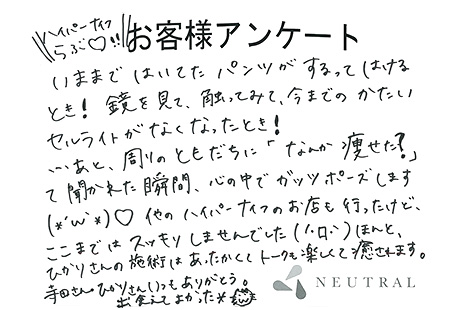 ハイパーナイフ
らぶ♡!!
お客様アンケート
いままではいてたパンツがするってはける
とき！鏡を見て、触ってみて、今までのかたい
セルライトがなくなったとき！
…あと、周りのともだちに「なんか痩せた？」
て聞かれた瞬間、心の中でガッツポーズします
(*'ω'*)♡ 他のハイパーナイフのお店も行ったけど、
ここまではスッキリしませんでした(´·ロ·`)ほんと、
ひかりさんの施術はあったかくてトークも楽しくて癒されます。
寺田さん、ひかりさんいつもありがとう。
出会えてよかった*
NEUTRAL